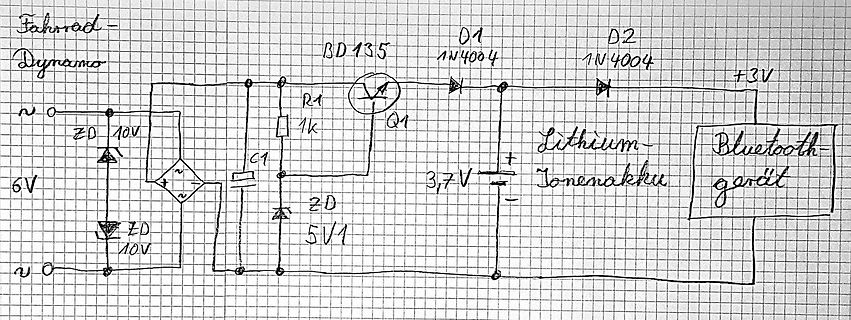 Fahrrad-
Dynamo
~
6V
~
ZD 10V
ZD
10V
~
+ -
~
C1
R1
1k
BD135
Q1
ZD
5V1
D1
1N4004
D2
1N4004
3,7V
+
-
Lithium-
Ionenakku
+3V
Bluetooth-
gerät